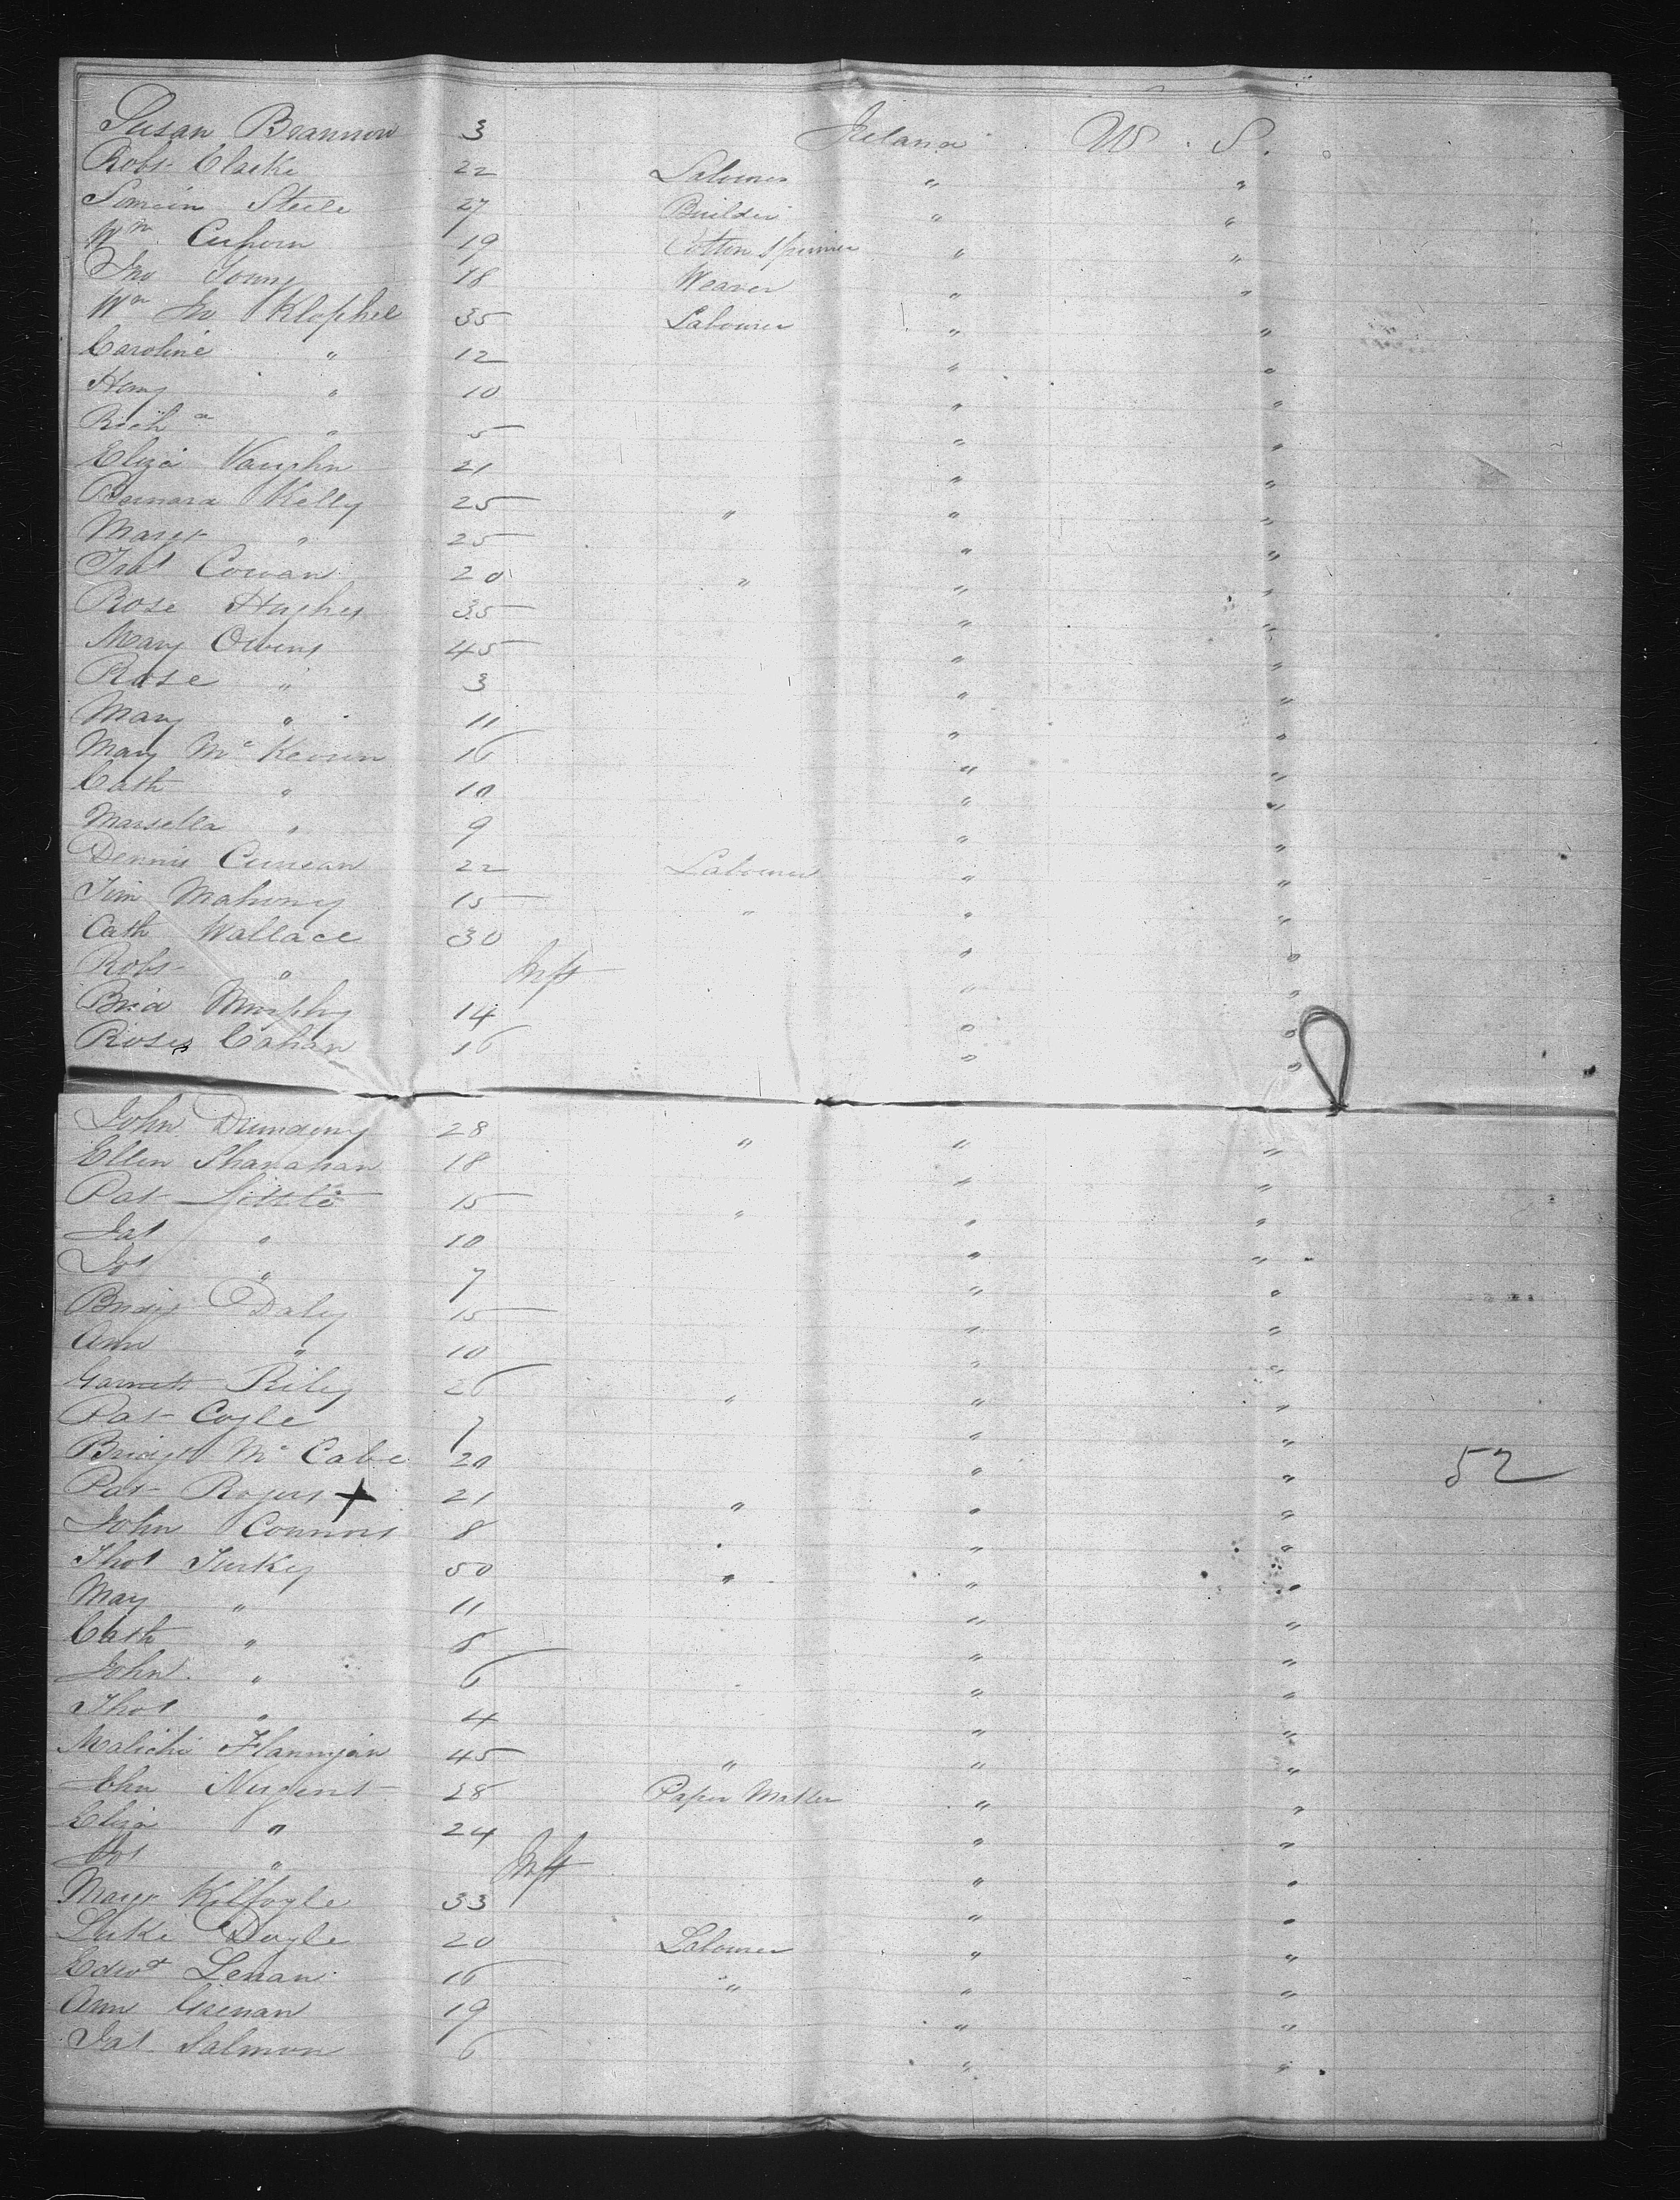 Susan Brannon 3 Ireland U. S.
Robt Clarke 22 Labourer " "
Steele 27 Builder " "
Wm 19 Cotton Spinner " "
Jno Young 18 Weaver " "
Wm Jno Klophel 35 Labourer " "
Caroline " 12 " "
Henry " 10 " "
Richd " 5 " "
Eliza Vaughn 21 " "
Bernard Kelly 25 " " "
Margt " 25 " "
Cowan 20 " " "
Rose Hughes 35 " "
Mary Owens 45 " "
Rose " 3 " "
Mary " 11 " "
Mary McKeown 16 " "
Cath " 10 " "
Marsella " 9 " "
Dennis 22 Labourer " "
Tim Mahoney 15 " " "
Cath Wallace 30 " "
Robt " Inft " "
Brid Murphy 14 " "
Rose Cahan 16 " "
John 28 " " "
Ellen Shanahan 18 " "
Pat Little 15 " " "
Jas " 10 " "
Jos " 7 " "
Daly 15 " "
Ann " 10 " "
Garrett Riley 26 " " "
Pat Coyle 7 " "
Bridgt McCabe 20 " " 52
Pat Rogers + 21 " " "
John Connors 8 " "
Thos Turkey 50 " " "
Mary " 11 " "
Cath " 8 " "
John " 6 " "
Thos " 4 " "
Malichi Flannigan 45 " " "
John Nugent 28 Paper Maker " "
Eliza " 24 " "
Jos " Inft " "
Margt Kilfoyle 33 " "
Luke Doyle 20 Labourer " "
Edwd Lenan 16 " " "
Ann 19 " "
Jas Salmon 6 " "